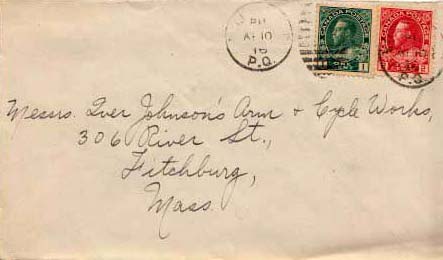 PM
AP 10
16
P.Q.
CANADA POSTAGE
1
CANADA POSTAGE
P.Q.
Messrs. Iver Johnson's Arm & Cycle Works,
306 River St.,
Fitchburg,
Mass.